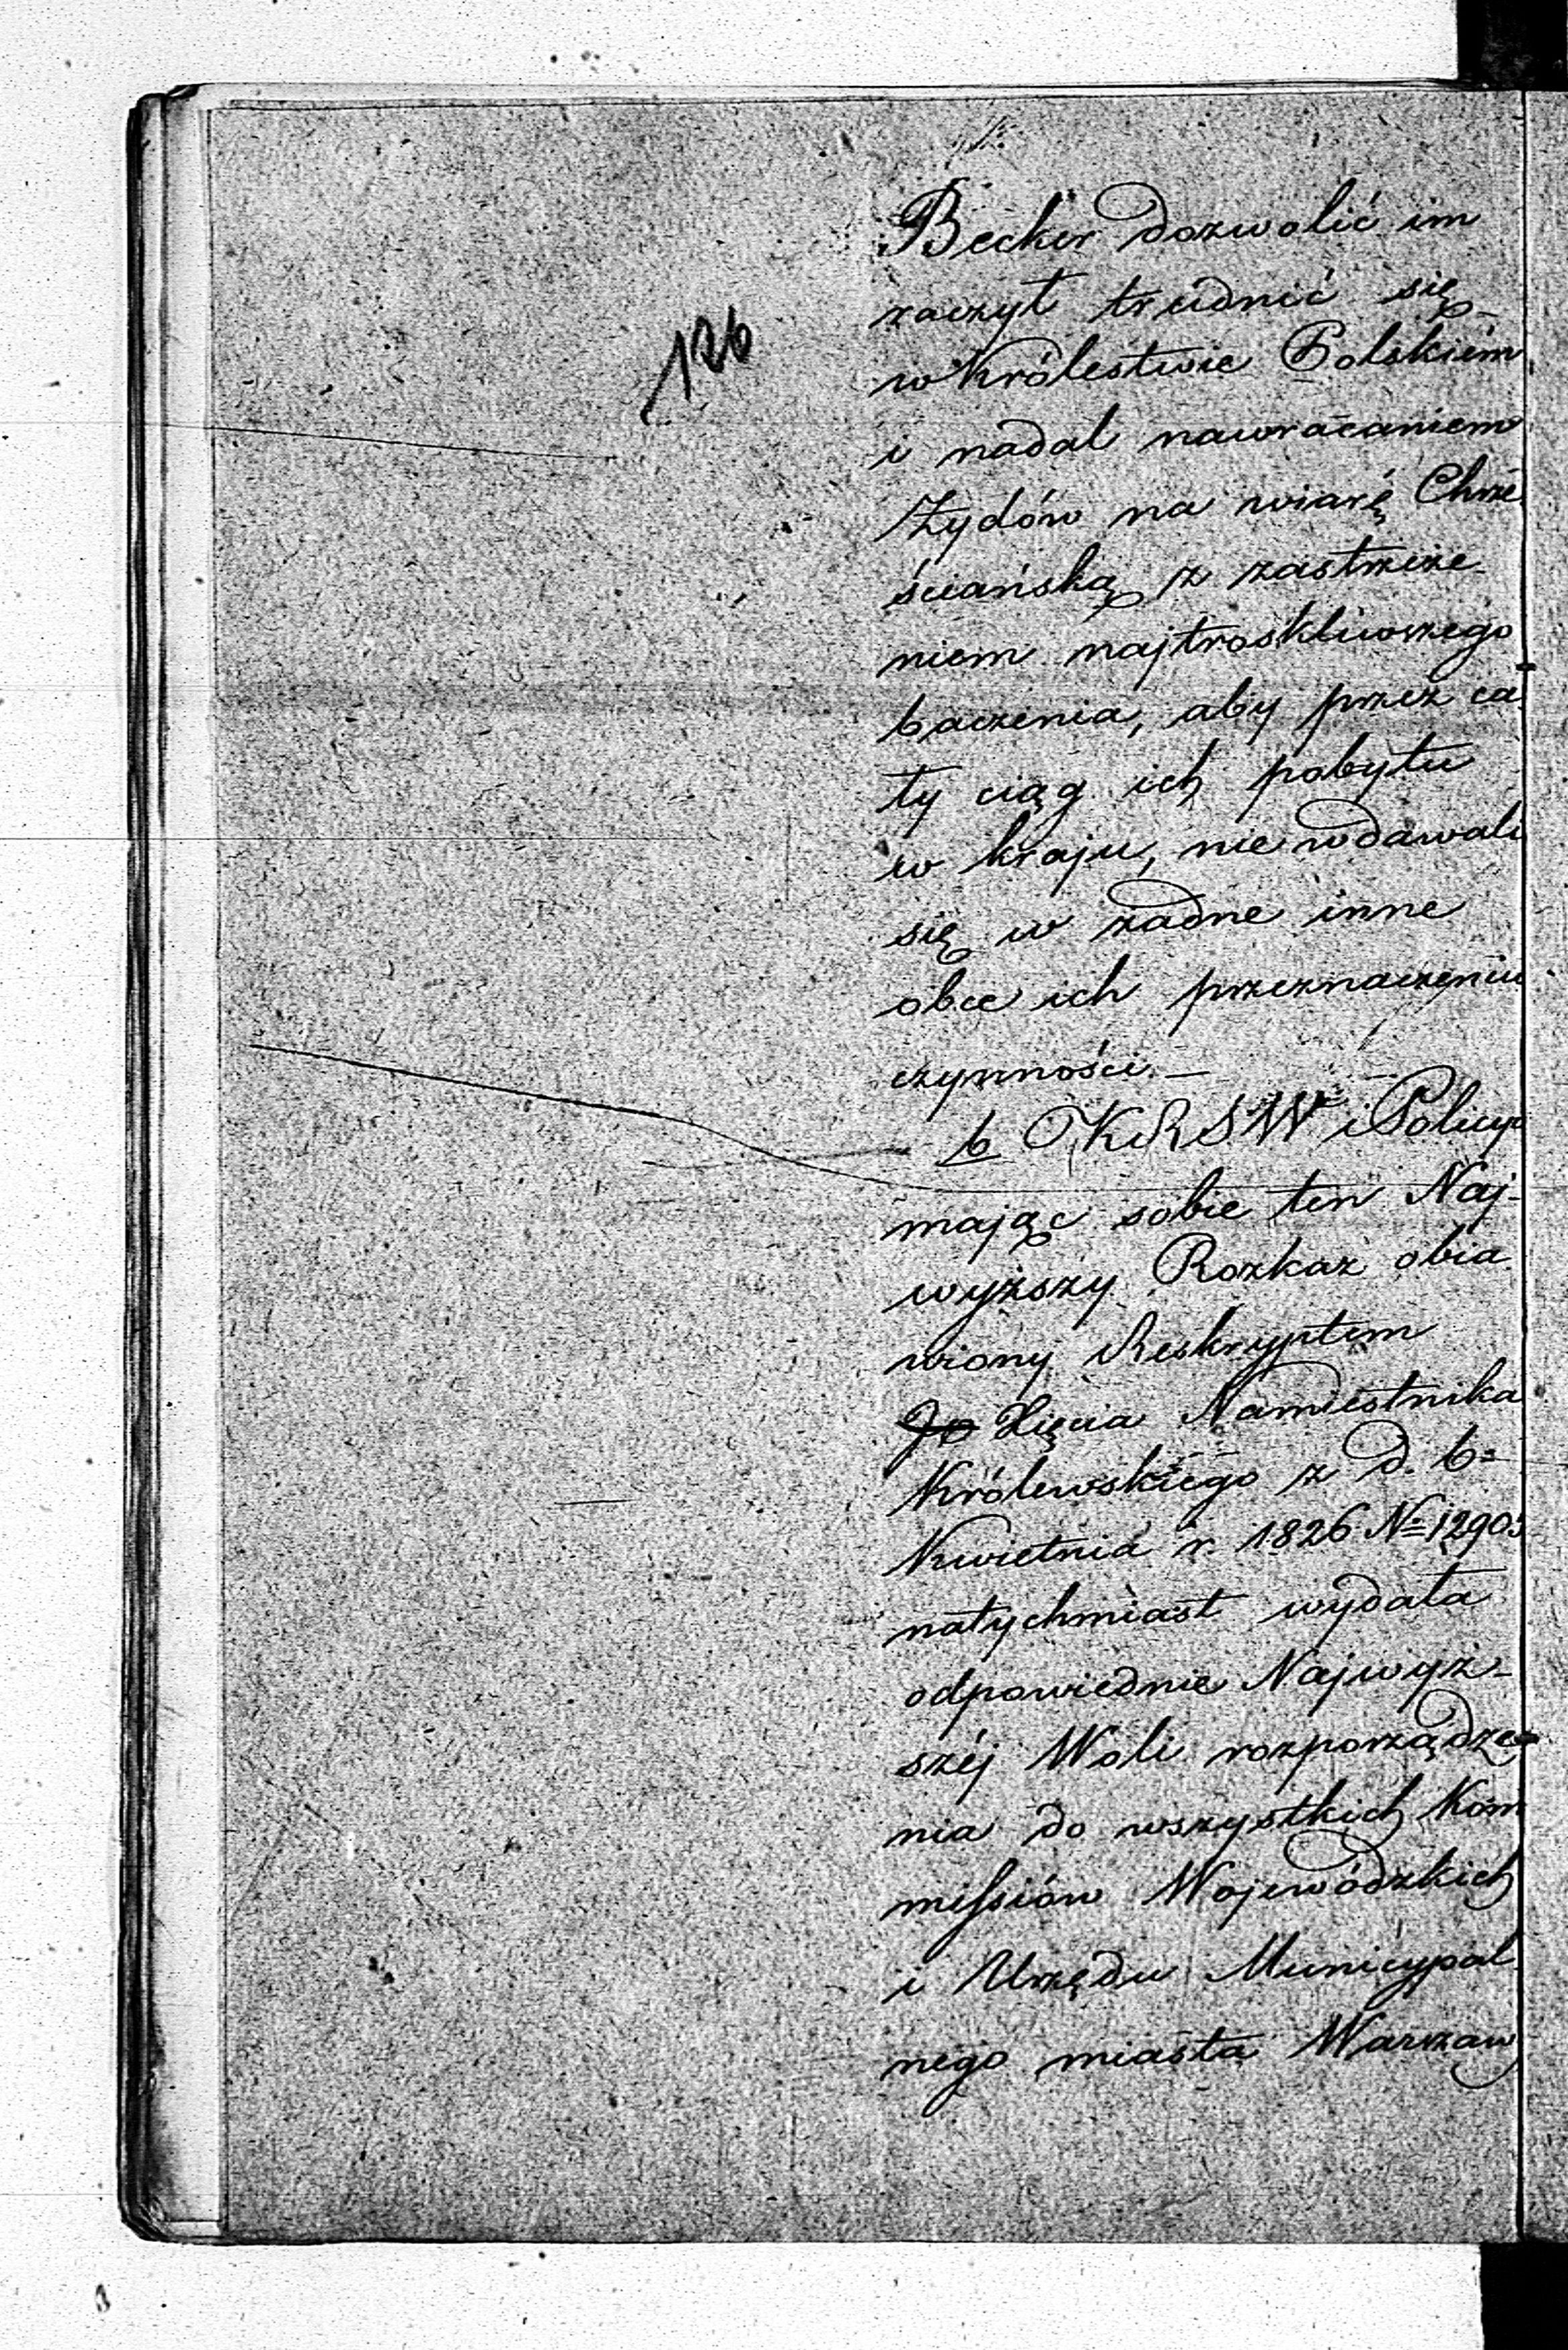 126
Becker dozwolić im
raczył trudnić się
w Królestwie Polskiém
i nadal nawracaniem
Żydów na wiarę Chrze
ściańską z zastrzeże
niem najtroskliwszego
baczenia, aby przez ca
ły ciąg ich pobytu
w kraju, nie wdawali
się w żadne inne
obce ich przeznaczeniu
czynności. —
b KRSW i Policyi
mając sobie ten Naj-
wyższy Rozkaz obia
wiony Reskryptem
Xięcia Namiestnika
Królewskiego z d. 6
Kwietnia r. 1826 No 12903
natychmiast wydała
odpowiednie Najwyż-
széj Woli rozporządze
nia do wszystkich Kom
missiów Wojewódzkich
i Urzędu Municypal
nego miasta Warszawy